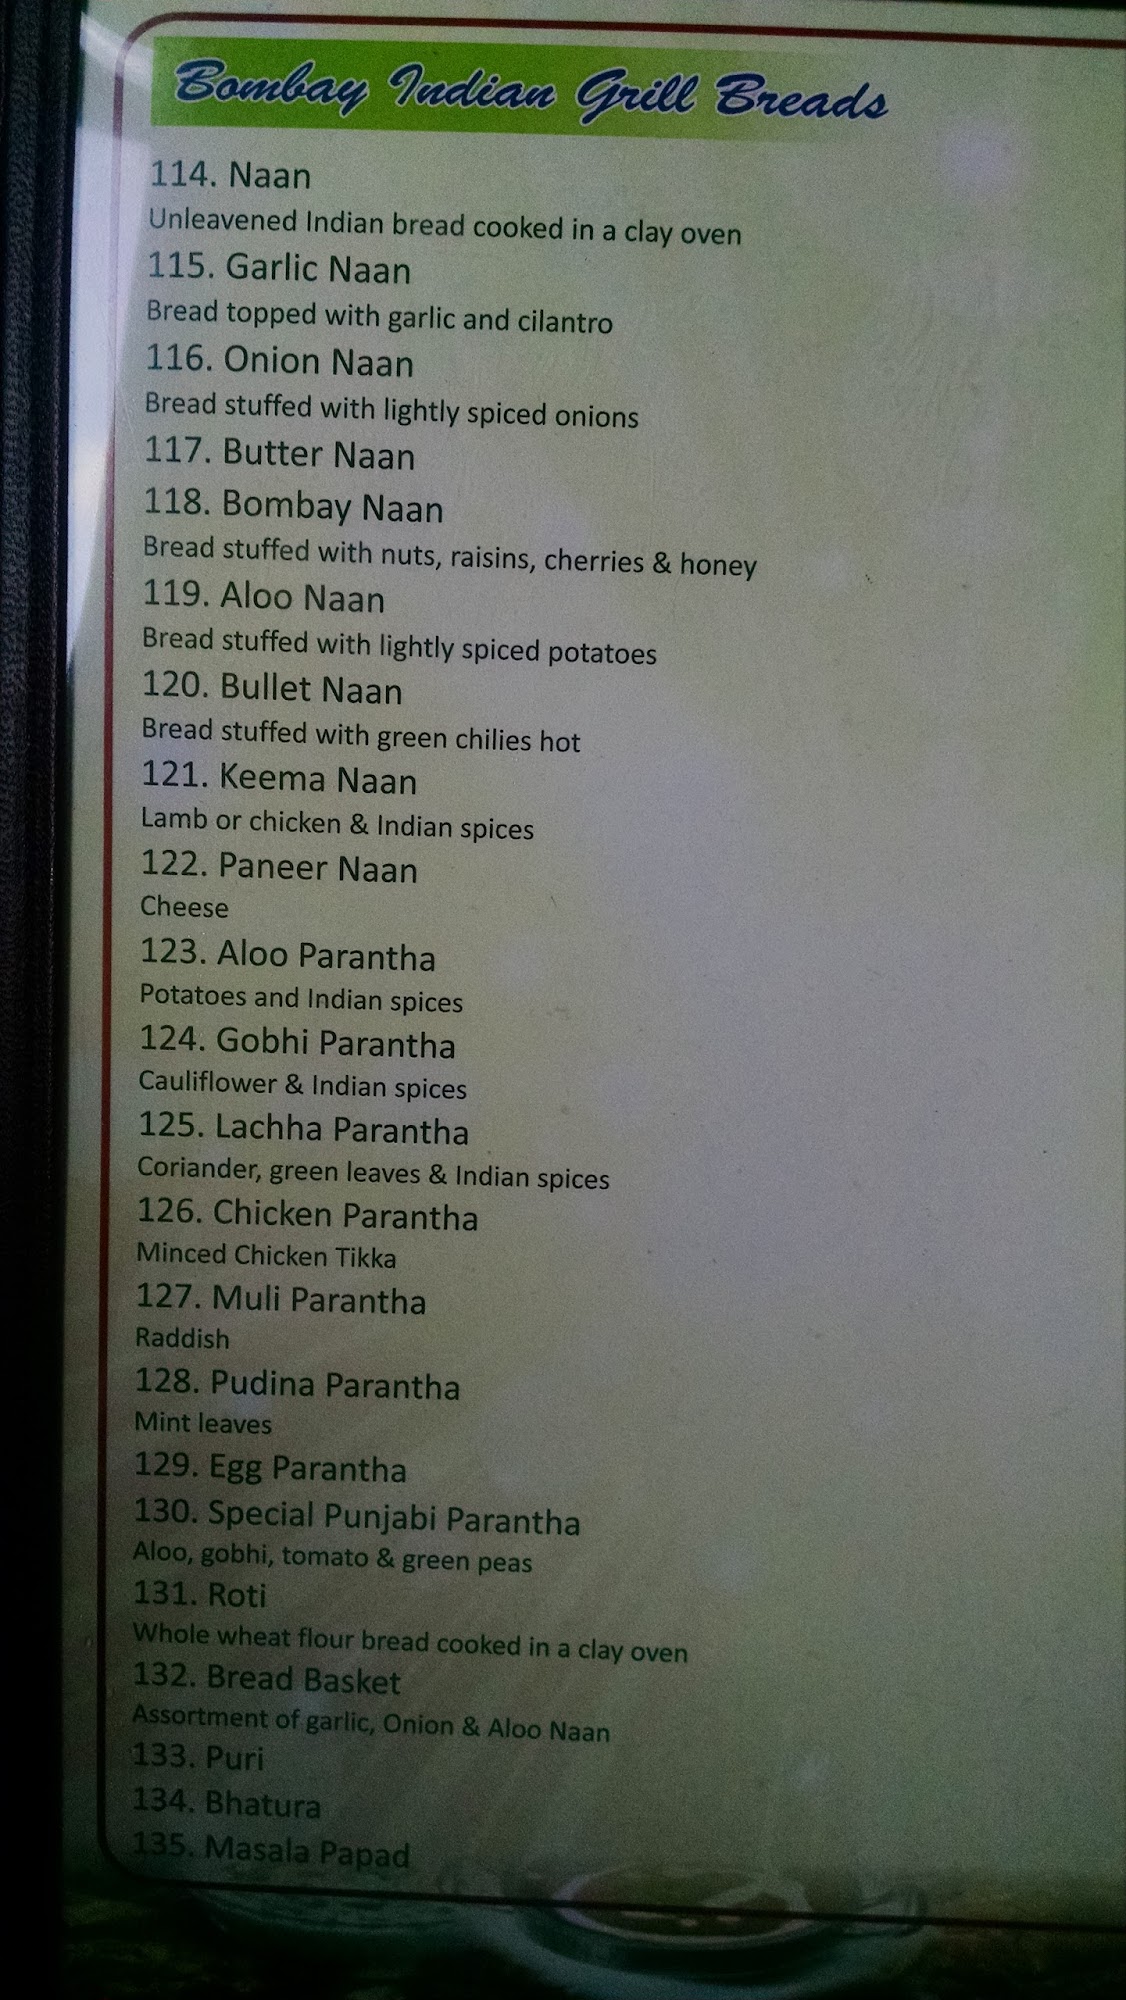 Bombay Indian Grill Breads
114. Naan
Unleavened Indian bread cooked in a clay oven
115. Garlic Naan
Bread topped with garlic and cilantro
116. Onion Naan
Bread stuffed with lightly spiced onions
117. Butter Naan
118. Bombay Naan
Bread stuffed with nuts, raisins, cherries & honey
119. Aloo Naan
Bread stuffed with lightly spiced potatoes
120. Bullet Naan
Bread stuffed with green chilies hot
121. Keema Naan
Lamb or chicken & Indian spices
122. Paneer Naan
Cheese
123. Aloo Parantha
Potatoes and Indian spices
124. Gobhi Parantha
Cauliflower & Indian spices
125. Lachha Parantha
Coriander, green leaves & Indian spices
126. Chicken Parantha
Minced Chicken Tikka
127. Muli Parantha
Raddish
128. Pudina Parantha
Mint leaves
129. Egg Parantha
130. Special Punjabi Parantha
Aloo, gobhi, tomato & green peas
131. Roti
Whole wheat flour bread cooked in a clay oven
132. Bread Basket
Assortment of garlic, Onion & Aloo Naan
133. Puri
134. Bhatura
135. Masala Papad